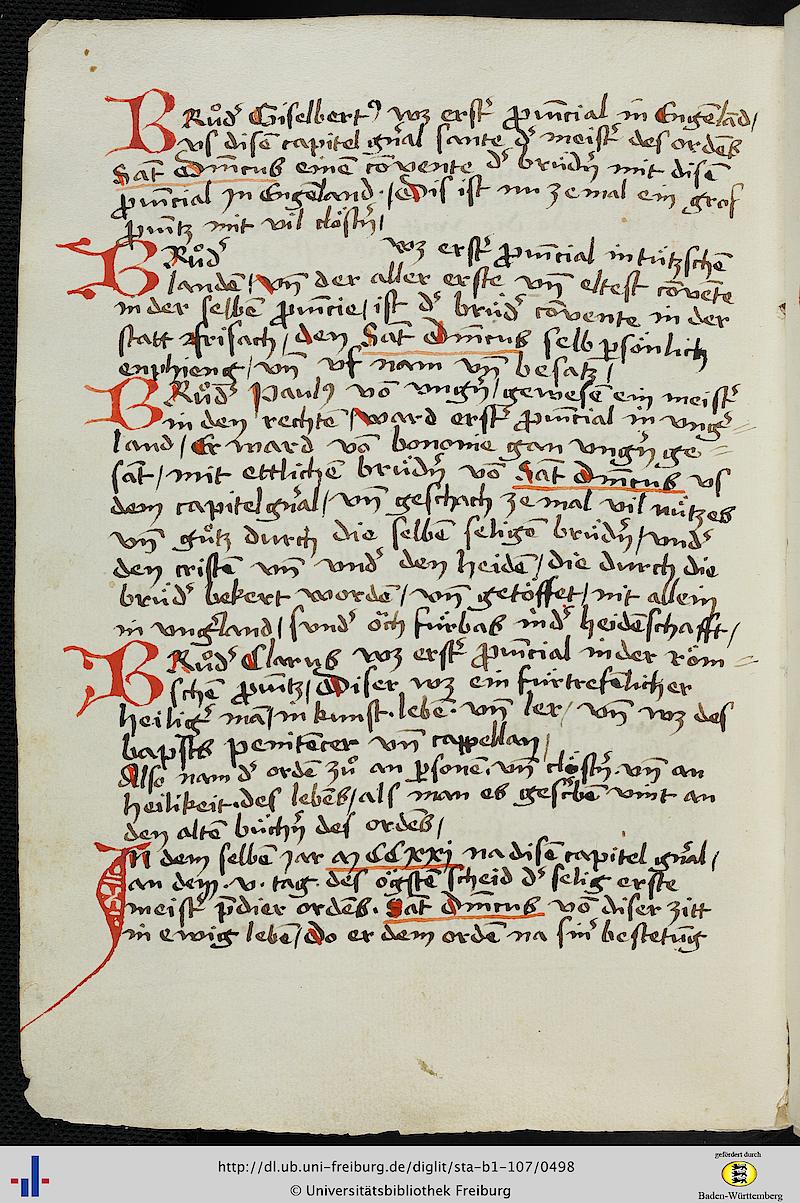 BRůd' Giselbertꝰ wz erst' ꝓuīcial in Engēlād/
vs disē capitel gn̄al sante d' meist' des ordēs
Sāt Dm̄icus einē cōvente d' brüdn̄ mit disē
ꝓuīcial Jn Engēland / Dis ist nu ze mal ein gros
ꝓuītz mit vil clöstn̄ /
BRůd' wz erst' ꝓuīcial in tützschē
landē / vn̄ der aller erste vn̄ eltest cōvēte
in der selbē ꝓuīcie / ist d' brüd' cōvente in der
statt frisach / den Sāt Dm̄icus selb ꝑsönlich
enphieng / vn̄ vf nam vn̄ besatz /
BRůd' Paulꝰ vō vngn̄ / gewesē ein meist'
in den rechtē / ward erst' ꝓuīcial in vng'=
land / Er ward vō bonome gan vngn̄ ge=
sāt / mit ettlichē brüdn̄ vō Sāt Dm̄icus vs
dem capitel gn̄al / vn̄ geschach ze mal vil nützes
vn̄ gůtz durch die selbē seligē brüdn̄ / vnd'
den cristē vn̄ vnd' den heidē / die durch die
brüd' bekert wordē / vn̄ getöffet / nit allein
in vng'land / sund' öch fürbas in d' heidēschafft /
BRůd' Clarus wz erst' ꝓuīcial in der röm=
schē ꝓuītz / Diser wz ein fürtrefēlicher
heilig' mā / in kunst · lebē · vn̄ ler / vn̄ wz des
bapsts penitēcer vn̄ cappellan /
Also nam d' ordē zů an ꝑsonē · vn̄ clöstn̄ · vn̄ an
heilikeit · des lebēs / als man es gesc̄bē vint an
den altē büchn̄ des ordēs /
In dem selbē jar m CCxxi na disē capitel gn̄al /
an dem · v · tag · des ögstē scheid d' selig erste
meist' p̄dier ordēs · Sāt Dm̄icus vō diser zitt
in ewig lebē / Do er dem ordē na sin' bestetūg
http://dl.ub.uni-freiburg.de/diglit/sta-b1-107/0498
© Universitätsbibliothek Freiburg
gefördert durch
Baden-Württemberg